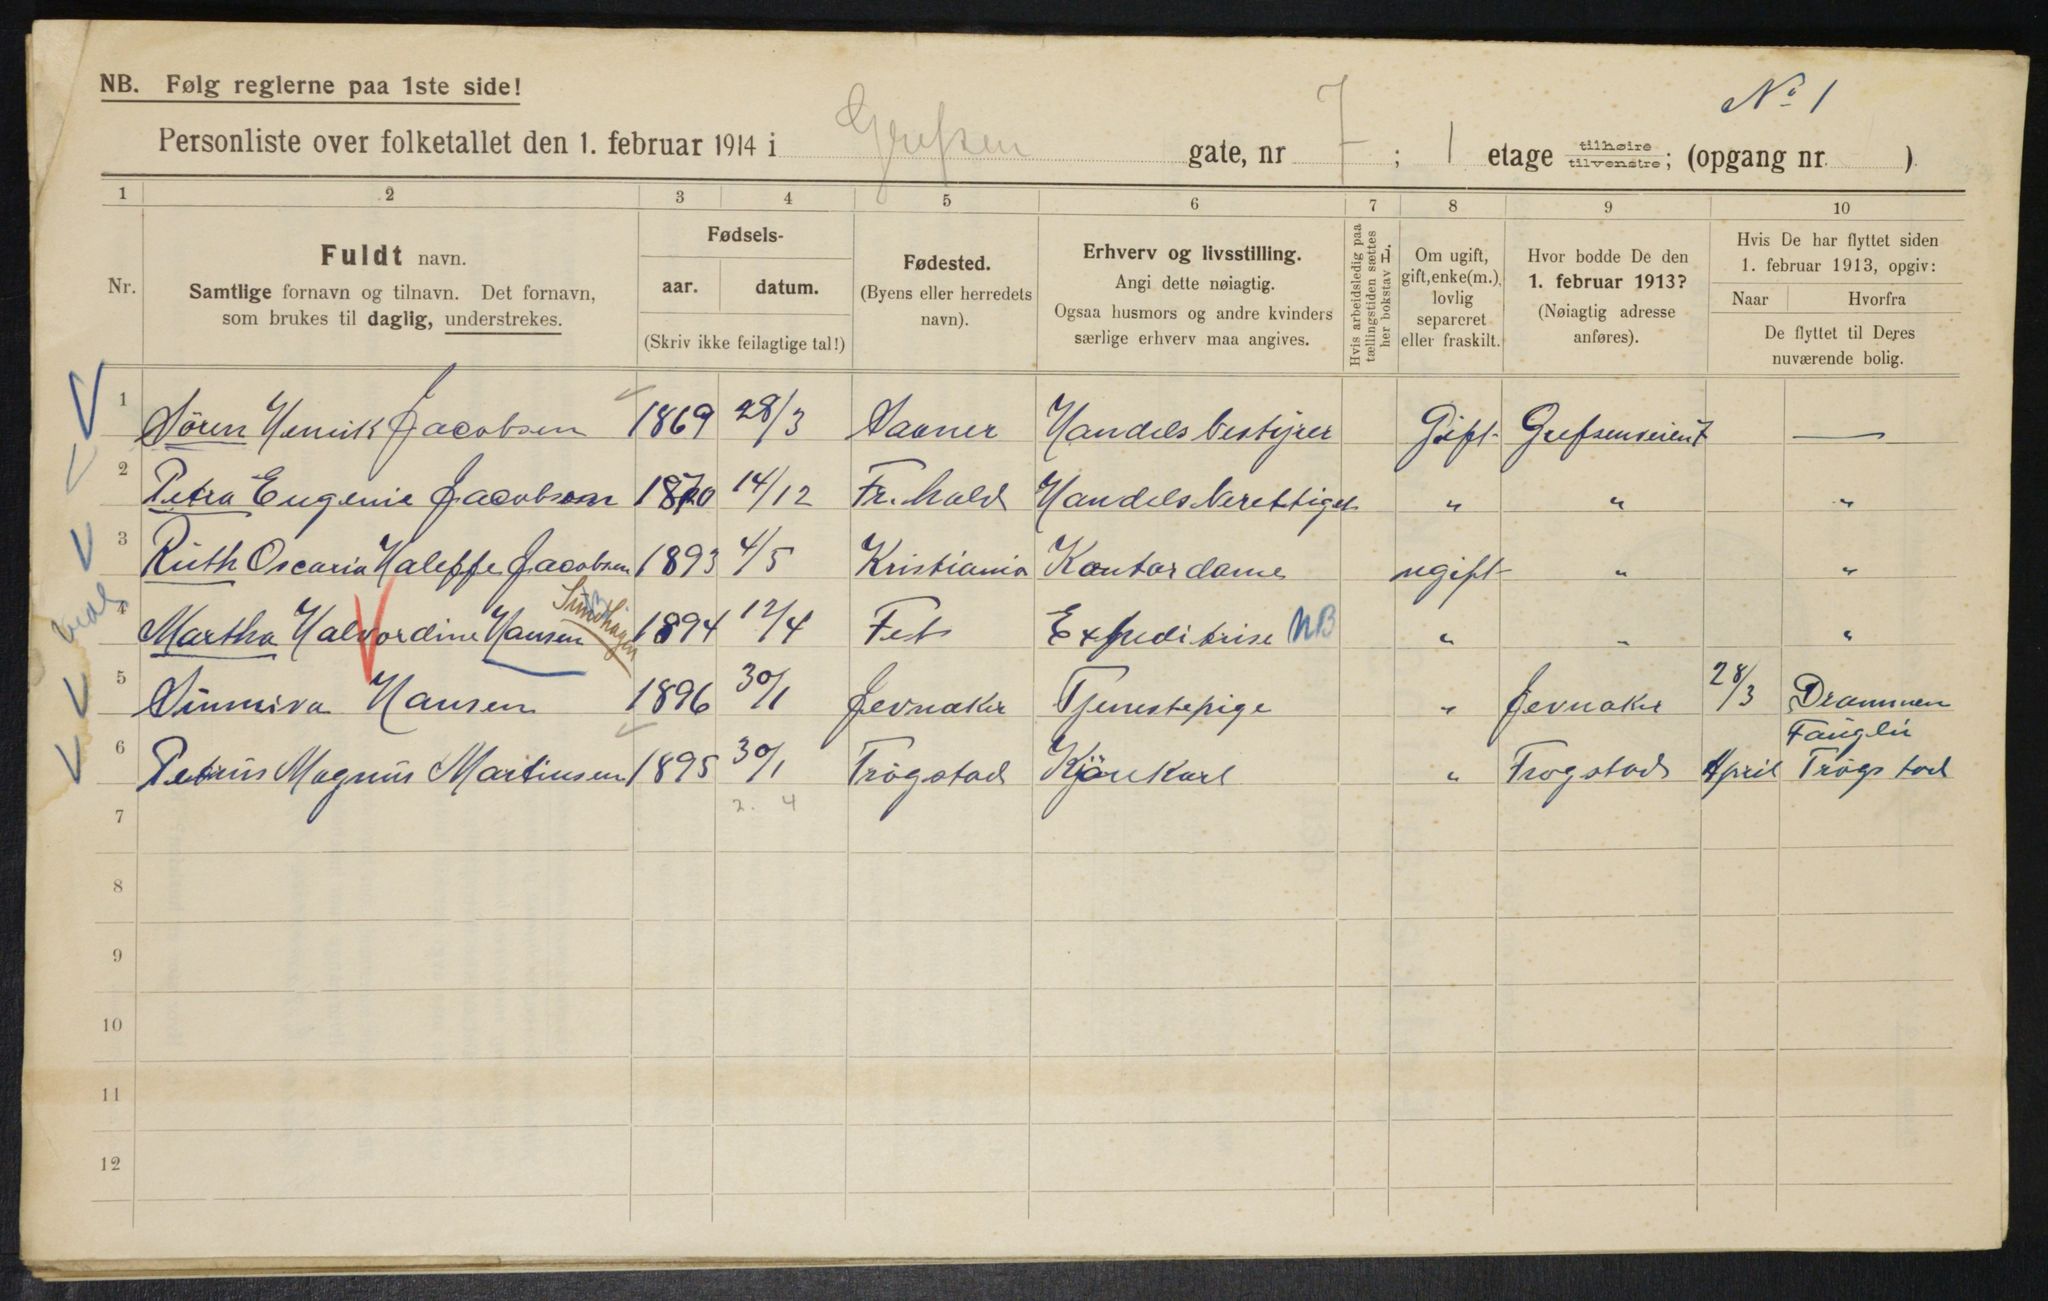 No 1
NB. Følg reglerne paa 1ste side!
Personliste over folketallet den 1. februar 1914 i Grefsen gate, nr 7 ; 1 etage tilhøire tilvenstre; (opgang nr. )
1 2 3 4 5 6 7 8 9 10
Nr.
Fuldt navn.
Samtlige fornavn og tilnavn. Det fornavn,
som brukes til daglig, understrekes.
Fødsels-
aar. datum.
(Skriv ikke feilagtige tal!)
Fødested.
(Byens eller herredets
navn).
Erhverv og livsstilling.
Angi dette nøiagtig.
Ogsaa husmors og andre kvinders
særlige erhverv maa angives.
Hvis arbeidsledig paa
tællingstiden sættes
her bokstav H.
Om ugift,
gift, enke(m.),
lovlig
separeret
eller fraskilt.
Hvor bodde De den
1. februar 1913?
(Nøiagtig adresse
anføres).
Hvis De har flyttet siden
1. februar 1913, opgiv:
Naar Hvorfra
De flyttet til Deres
nuværende bolig.
1 Sören Henrik Jacobsen 1869 28/3 Saaner Handelsbestyrer Gift Grefsenveien 7 —
2 Petra Eugenie Jacobsen 1870 14/12 Fr.hald Handelsberettiget " " "
3 Ruth Oscaria Jacobsen 1893 4/5 Kristiania Kontordame ugift " "
4 Martha Halvordine Hansen 1894 12/4 Fet Expeditrise NB " " "
5 Sünniva Hansen 1896 30/1 Jevnaker Tjenestepige " Jevnaker 28/3 Drammen
6 Petrus Magnus Martinsen 1895 30/1 Trögstad Kjörekarl " Trogstad April Fanglü Trögstad
2. 4
7
8
9
10
11
12